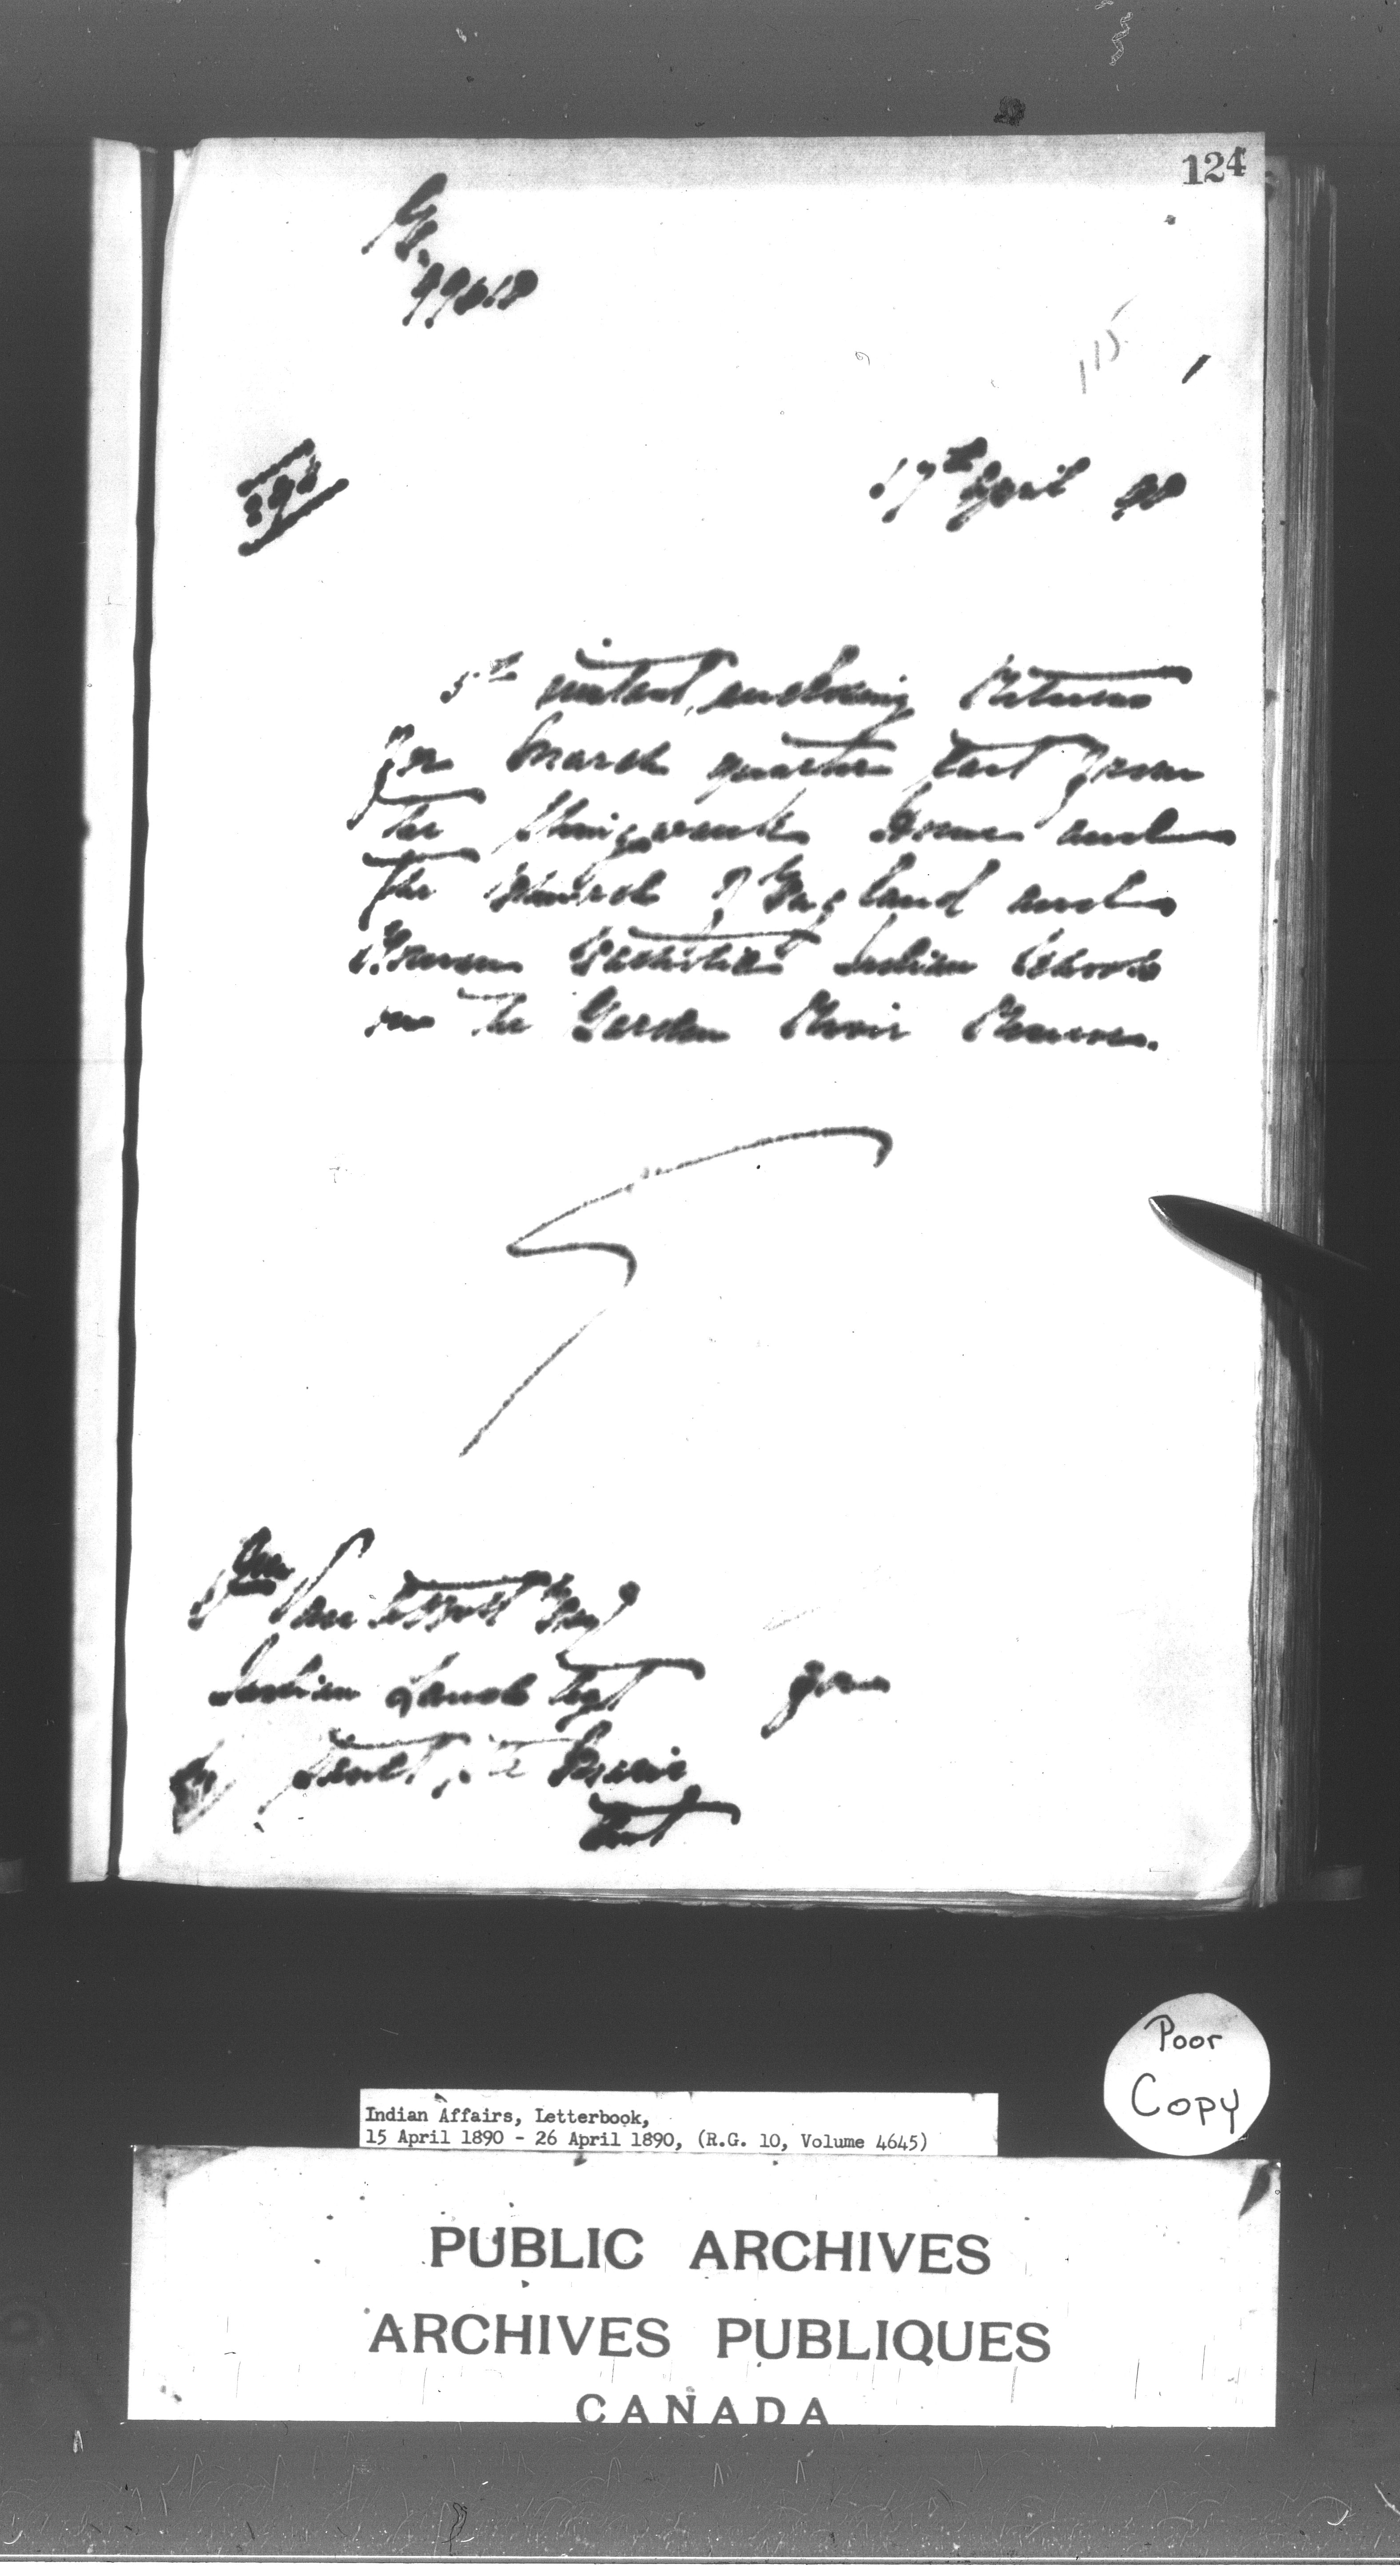 124
115
17th April 90
5th instant, enclosing Returns
for March quarter last from
the Shingwauk Home and
the Church of England and
Roman Catholic Indian Schools
on the Garden River Reserve.
Wm Van Abbott Esq
Indian Lands Agt
Sault Ste Marie
Ont
Poor
Copy
Indian Affairs, Letterbook,
15 April 1890 - 26 April 1890, (R.G. 10, Volume 4645)
PUBLIC ARCHIVES
ARCHIVES PUBLIQUES
CANADA